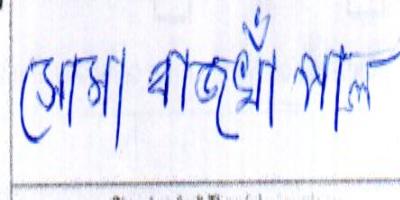 সোমা বাজখাঁ পাল